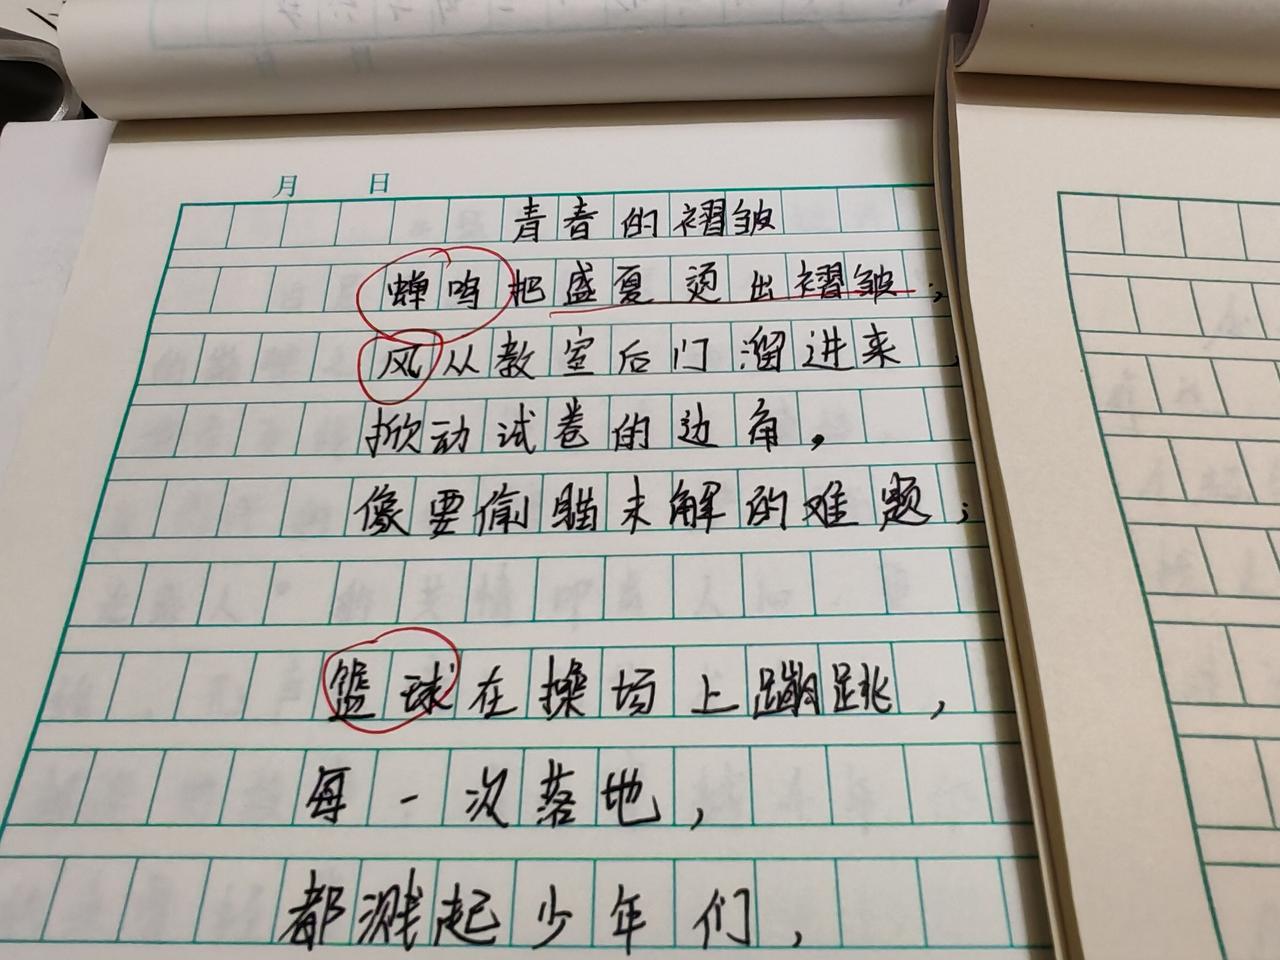 月 日
青春的褶皱
蝉鸣把盛夏烫出褶皱，
风从教室后门溜进来
掀动试卷的边角，
像要偷瞄未解的难题；
篮球在操场上蹦跳，
每一次落地，
都溅起少年们，